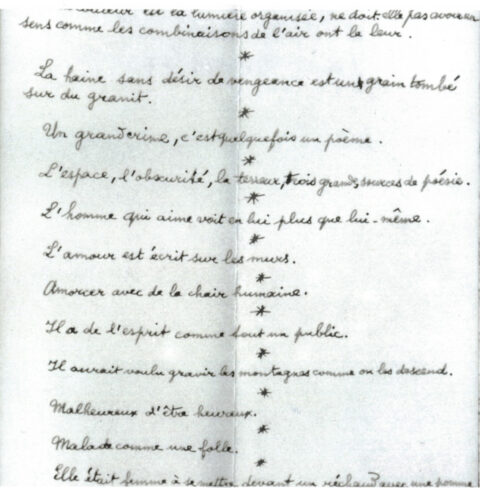 couleur est la lumière organisée, ne doit-elle pas avoir un
sens comme les combinaisons de l'air ont la leur.
*
La haine sans désir de vengeance est un grain tombé
sur du granit.
*
Un grand crime, c'est quelquefois un poème.
*
L'espace, l'obscurité, la terreur, trois grands sources de poésie.
*
L'homme qui aime voit en lui plus que lui-même.
*
L'amour est écrit sur les murs.
*
Amorcer avec de la chair humaine.
*
Il a de l'esprit comme tout un public.
*
Il aurait voulu gravir les montagnes comme on les descend.
*
Malheureux d'être heureux.
*
Malade comme une folle.
*
Elle était femme à se mettre devant un réchaud avec une pomme